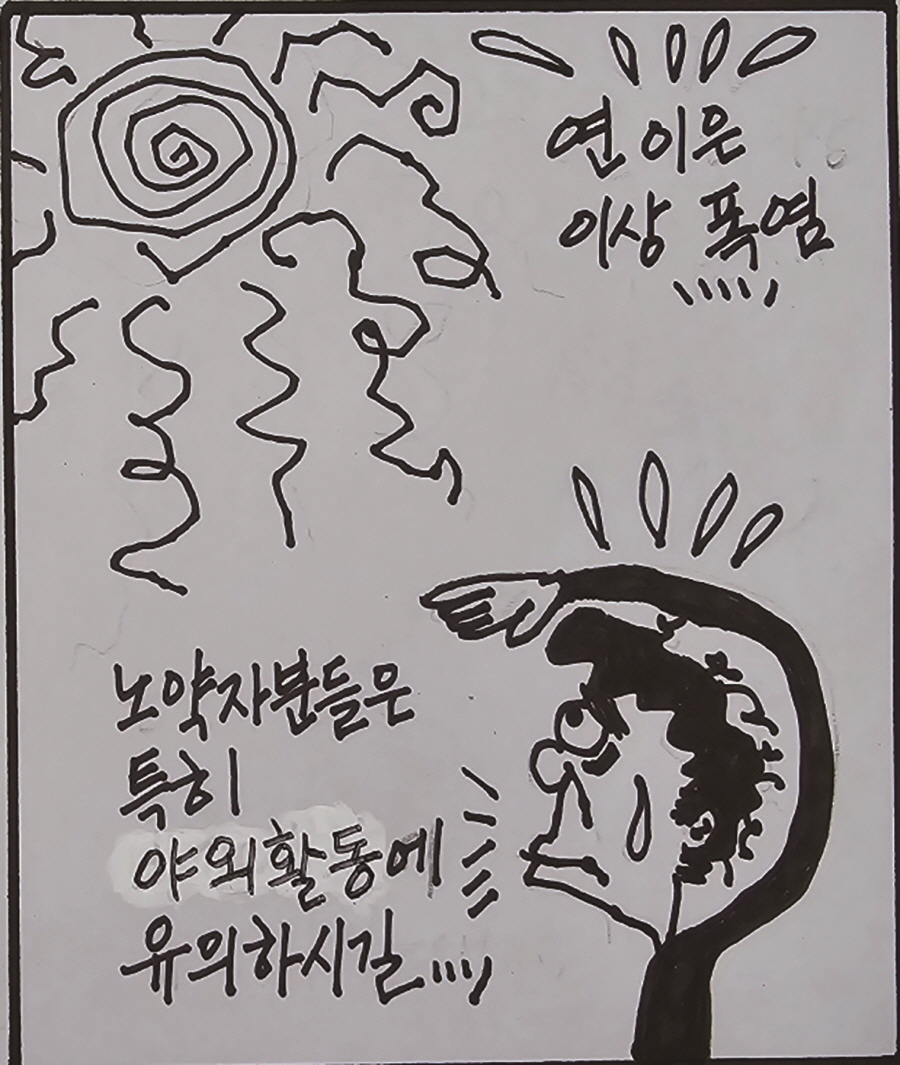 연이은
이상 폭염
노약자분들은
특히
야외활동에
유의하시길....